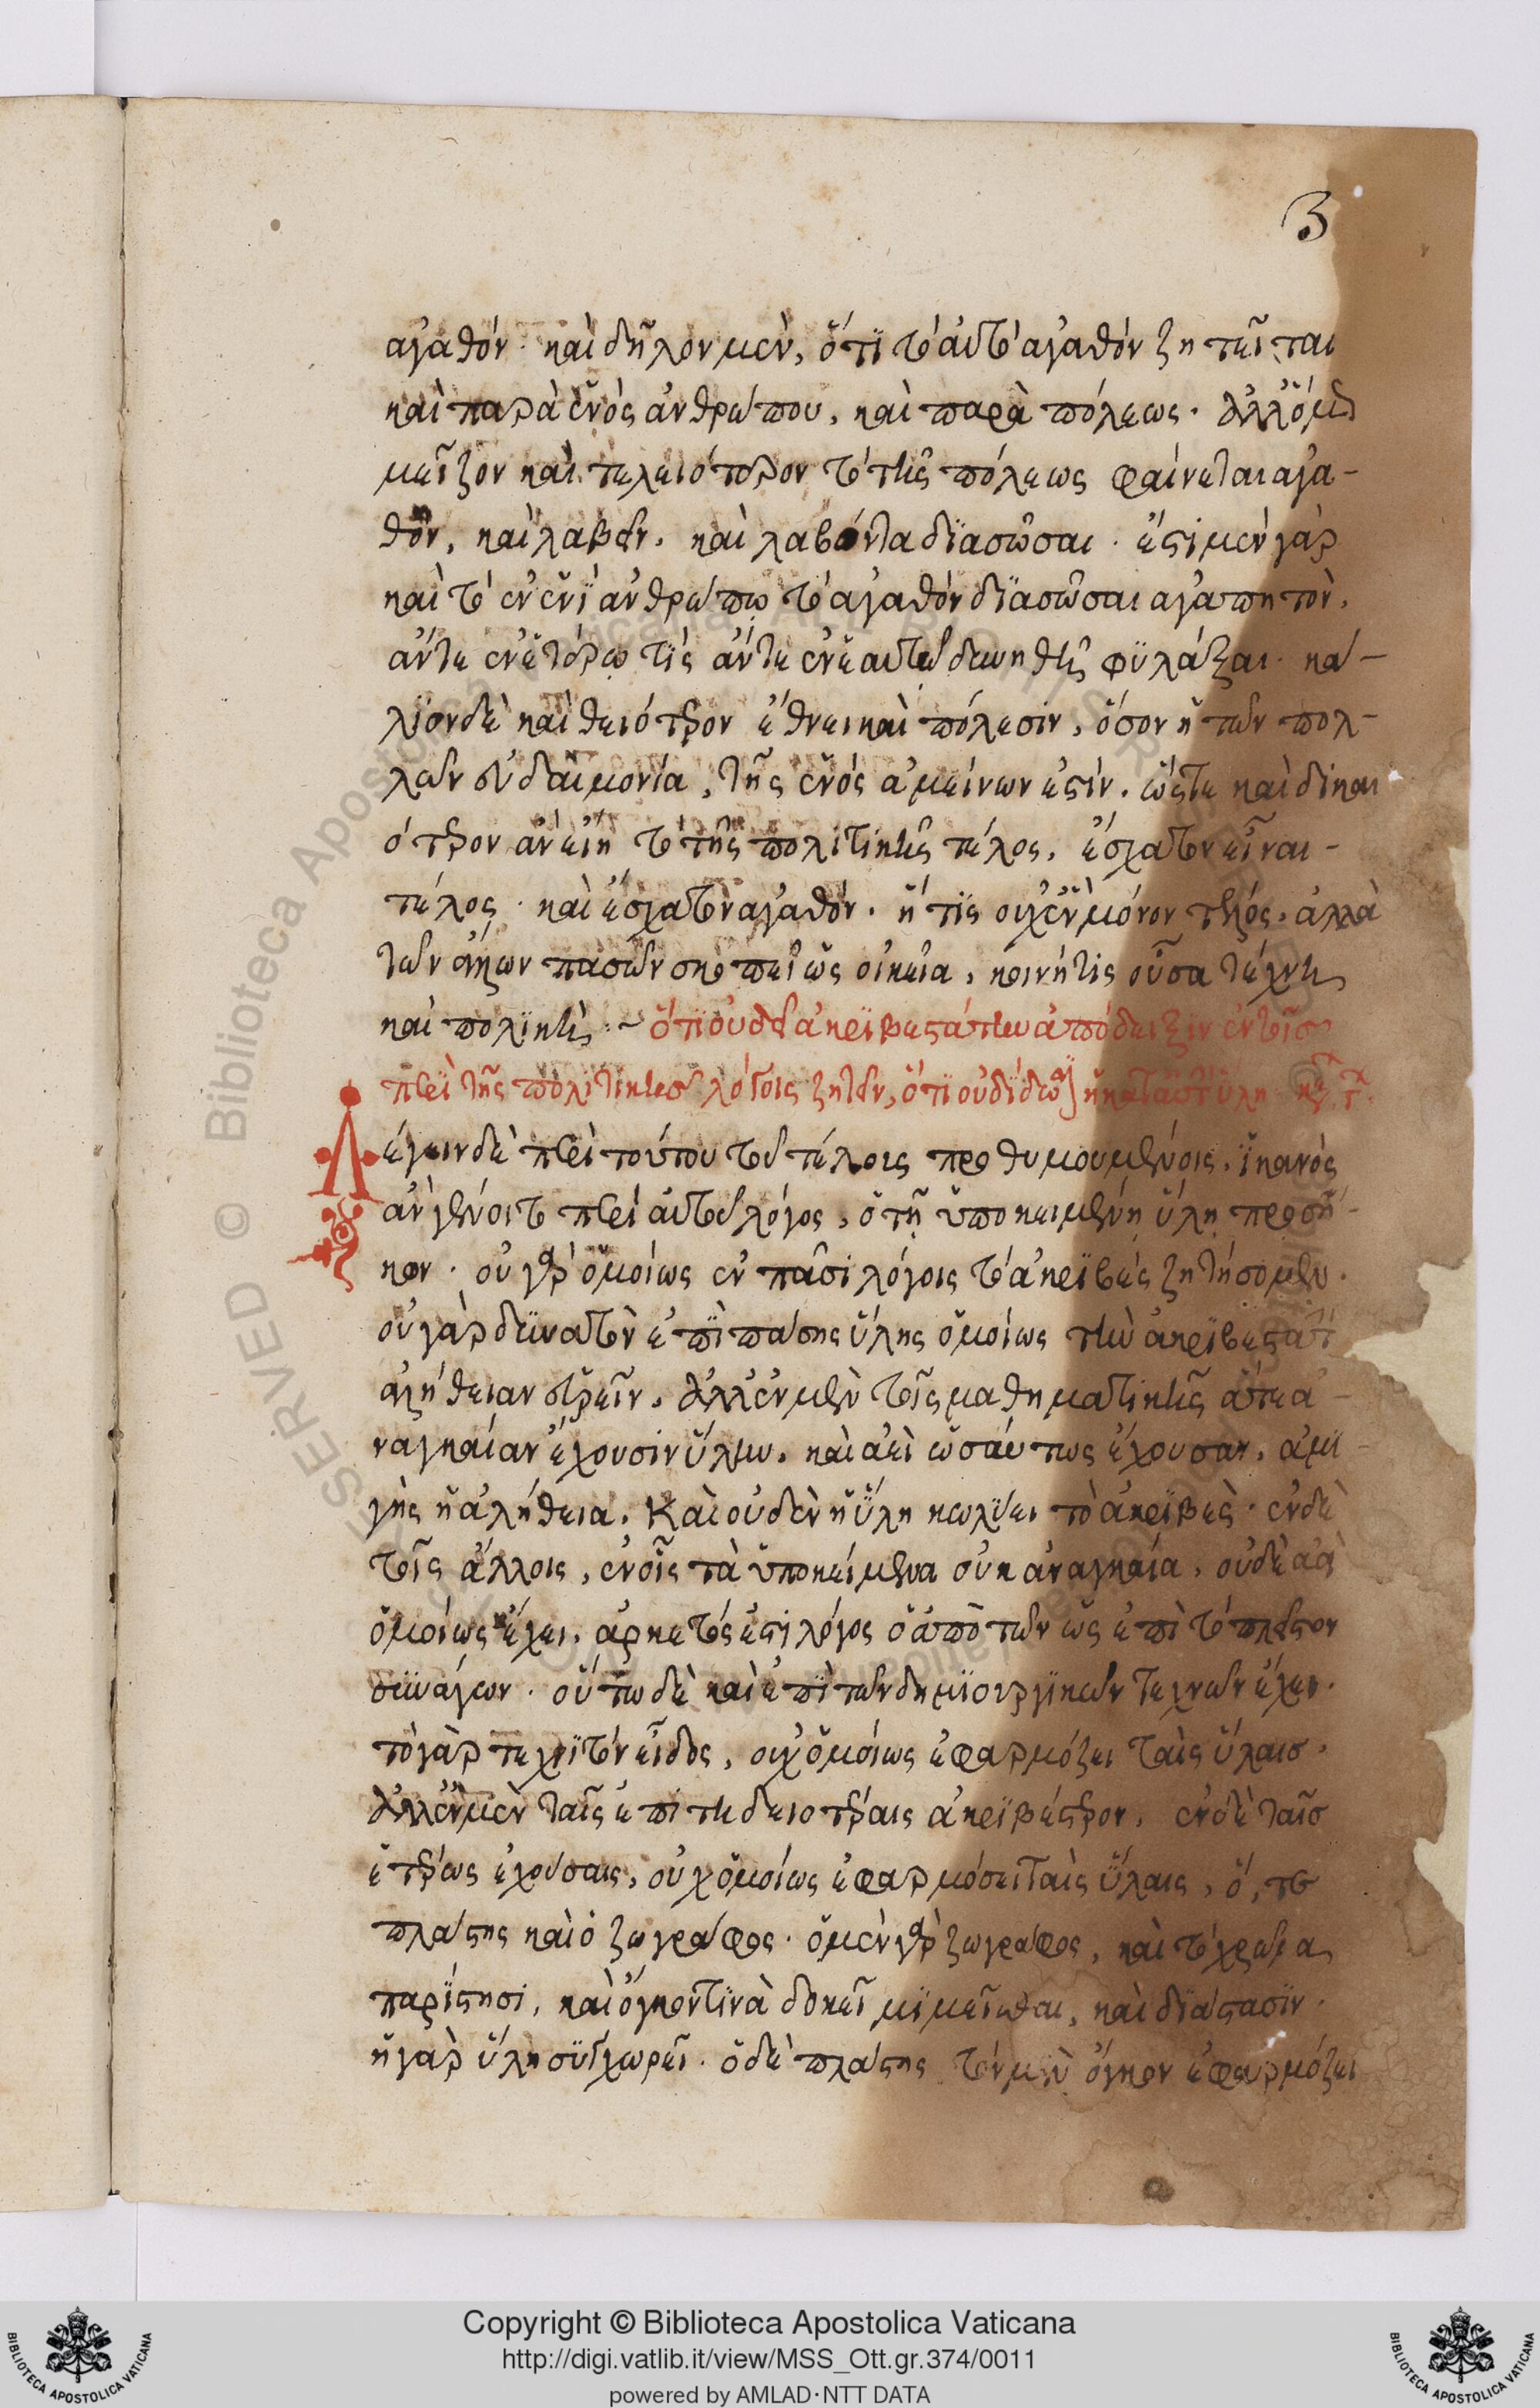 3
ἀγαθόν· καὶ δῆλον μὲν, ὅτι τὸ αὐτὸ ἀγαθὸν ζητεῖται
καὶ παρὰ ἑνὸς ἀνθρώπου, καὶ παρὰ πόλεως. ἀλλ' ὅμως
μεῖζον καὶ τελειότερον τὸ τῆς πόλεως φαίνεται ἀγα-
θὸν, καὶ λαβεῖν, καὶ λαβόντα διασῶσαι. ἔστι μὲν γὰρ
καὶ τὸ ἐν ἑνὶ ἀνθρώπῳ τὸ ἀγαθὸν διασῶσαι ἀγαπητὸν,
ἄντε ἐν ἑτέρῳ τὶς ἄντε ἐν ἑαυτῷ δυνηθῇ φυλάξαι· κα-
λίον δὲ καὶ θειότερον ἔθνει καὶ πόλεσιν, ὅσον ἡ τῶν πολ-
λῶν εὐδαιμονία, τῆς ἑνὸς ἀμείνων ἐστίν. ὥστε καὶ δικαι
ότερον ἂν εἴη τὸ τῆς πολιτικῆς τέλος, ἔσχατον εἶναι
τέλος· καὶ ἔσχατον ἀγαθόν. ἥτις οὐχ ἑνὸς μόνον τέλος, ἀλλὰ
τῶν ὅλων πασῶν σκοπεῖ ὡς οἰκεῖα, κοινή τις οὖσα τέχνη
καὶ πολιτικὴ. ~ ὅτι οὐ δεῖ ἀκριβεστάτην ἀπόδειξιν ἐν τοῖς
περὶ τῆς πολιτικῆς λόγοις ζητεῖν, ὅτι οὐ δίδωσι ἡ κατ' αὐτὴν ὕλη
Λέγειν δὲ περὶ τούτου τοῦ τέλους προθυμουμένοις, ἱκανὸς
ἂν γένοιτο περὶ αὐτοῦ λόγος, ὁ τῇ ὑποκειμένῃ ὕλῃ προσή-
κων· οὐ γὰρ ὁμοίως ἐν πᾶσι λόγοις τὸ ἀκριβὲς ζητήσομεν.
οὐ γὰρ δυνατὸν ἐπὶ πάσης ὕλης ὁμοίως τὴν ἀκριβεστάτ
ἀλήθειαν εὑρεῖν. ἀλλ' ἐν μὲν τοῖς μαθηματικοῖς ἅτε ἀ-
ναγκαίαν ἔχουσιν ὕλην, καὶ ἀεὶ ὡσαύτως ἔχουσαν, ἀμι-
γὴς ἡ ἀλήθεια. Καὶ οὐδὲν ἡ ὕλη κωλύει τὸ ἀκριβὲς· ἐν δὲ
τοῖς ἄλλοις, ἐν οἷς τὰ ὑποκείμενα οὐκ ἀναγκαῖα, οὐδὲ ἀεὶ
ὁμοίως ἔχει, ἀρκετός ἐστι λόγος ὁ ἀπὸ τῶν ὡς ἐπὶ τὸ πλεῖστον
συνάγων. οὕτω δὲ καὶ ἐπὶ τῶν δημιουργικῶν τεχνῶν ἔχει.
τὸ γὰρ τεχνητὸν εἶδος, οὐχ ὁμοίως ἐφαρμόζει ταῖς ὕλαις.
ἀλλ' ἐν μὲν ταῖς ἐπιτηδειοτέραις ἀκριβέστερον, ἐν δὲ ταῖς
ἑτέρως ἐχούσαις, οὐχ ὁμοίως ἐφαρμόσει ταῖς ὕλαις, ὅ, τε
πλάστης καὶ ὁ ζωγράφος· ὁ μὲν γὰρ ζωγράφος, καὶ τὸ χρῶμα
παρίστησι, καὶ ὄγκον τινὰ δοκεῖ μιμεῖσθαι, καὶ διάστασιν.
ἡ γὰρ ὕλη συγχωρεῖ· ὁ δὲ πλάστης τὸν μὲν ὄγκον ἐφαρμόζει
RESERVED © Biblioteca Apostolica Vaticana
Copyright © Biblioteca Apostolica Vaticana
http://digi.vatlib.it/view/MSS_Ott.gr.374/0011
powered by AMLAD·NTT DATA
BIBLIOTECA APOSTOLICA VATICANA
BIBLIOTECA APOSTOLICA VATICANA